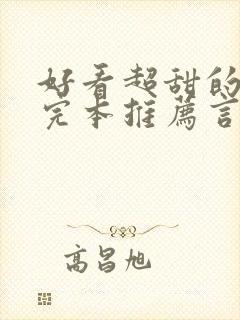 好看超甜的
完本推薦言
高昌旭